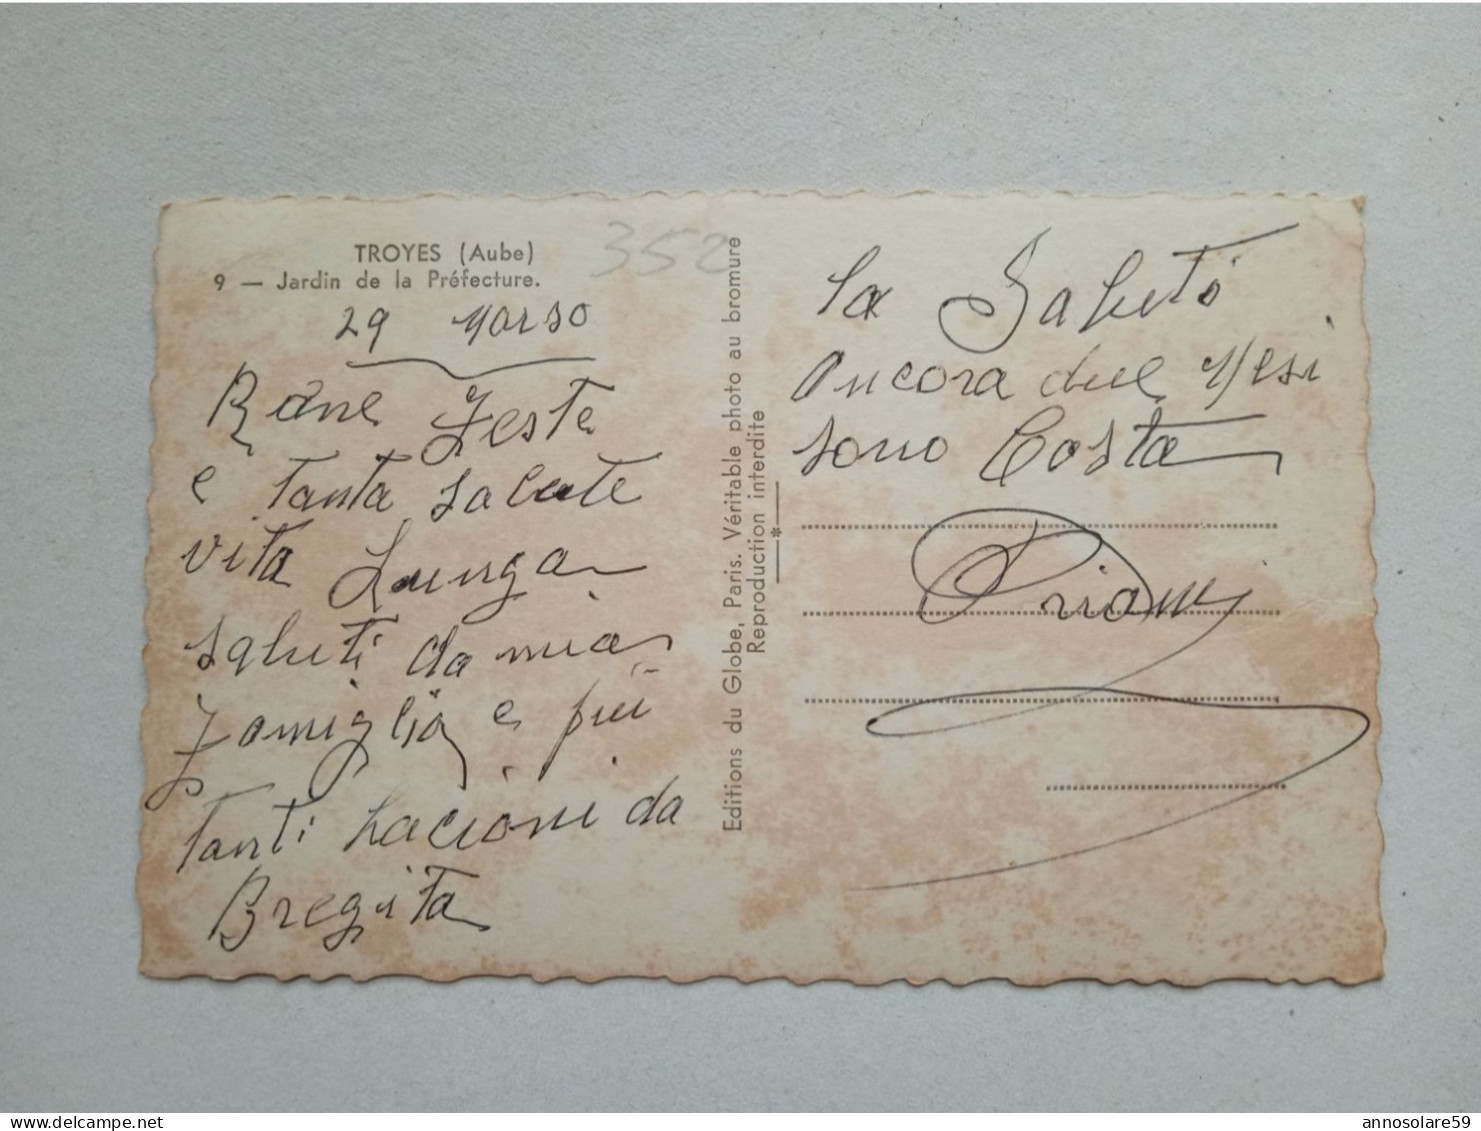 TROYES (Aube)
9 — Jardin de la Préfecture.
352
29 Marso
Bone Feste
e tanta salute
vita Lunga
saluti da mia
famiglia e più
tanti bacioni da
Bregita
Editions du Globe, Paris. Véritable photo au bromure
Reproduction interdite
la Saluto
Ancora due Mesi
sono Costa
www.delcampe.net
annosolare59